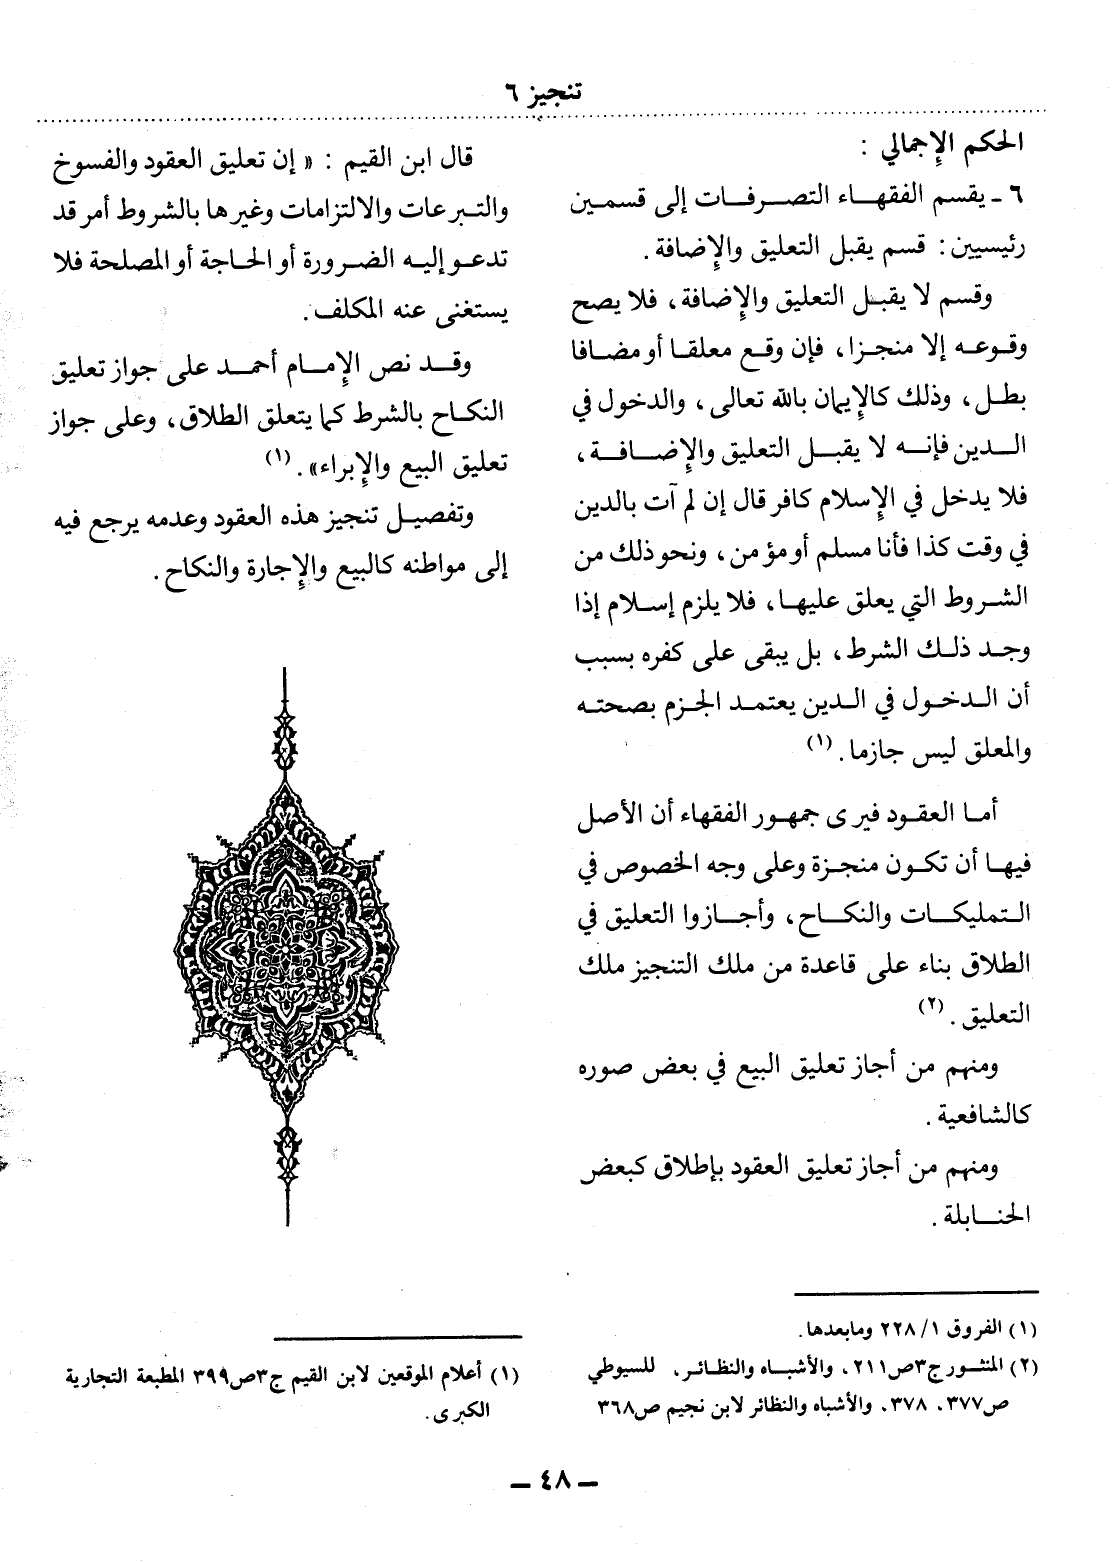 تنجيز ٦
الحكم الإجمالي :
٦ ـ يقسم الفقهاء التصرفات إلى قسمين
رئيسيين : قسم يقبل التعليق والإضافة .
وقسم لا يقبل التعليق والإضافة ، فلا يصح
وقوعه إلا منجزا ، فإن وقع معلقا أو مضافا
بطل ، وذلك كالإيمان بالله تعالى ، والدخول في
الدين فإنه لا يقبل التعليق والإضافة ،
فلا يدخل في الإسلام كافر قال إن لم آت بالدين
في وقت كذا فأنا مسلم أو مؤمن ، ونحو ذلك من
الشروط التي يعلق عليها ، فلا يلزم إسلام إذا
وجد ذلك الشرط ، بل يبقى على كفره بسبب
أن الدخول في الدين يعتمد الجزم بصحته
والمعلق ليس جازما . (١)
أما العقود فيرى جمهور الفقهاء أن الأصل
فيها أن تكون منجزة وعلى وجه الخصوص في
التمليكات والنكاح ، وأجازوا التعليق في
الطلاق بناء على قاعدة من ملك التنجيز ملك
التعليق . (٢)
ومنهم من أجاز تعليق البيع في بعض صوره
كالشافعية .
ومنهم من أجاز تعليق العقود بإطلاق كبعض
الحنابلة .
(١) الفروق ١/ ٢٢٨ ومابعدها .
(٢) المنثور ج٣ص٢١١ ، والأشباه والنظائر ، للسيوطي
ص٣٧٧ ، ٣٧٨ ، والأشباه والنظائر لابن نجيم ص٣٦٨
قال ابن القيم : « إن تعليق العقود والفسوخ
والتبرعات والالتزامات وغيرها بالشروط أمر قد
تدعو إليه الضرورة أو الحاجة أو المصلحة فلا
يستغنى عنه المكلف .
وقد نص الإمام أحمد على جواز تعليق
النكاح بالشرط كما يتعلق الطلاق ، وعلى جواز
تعليق البيع والإبراء» . (١)
وتفصيل تنجيز هذه العقود وعدمه يرجع فيه
إلى مواطنه كالبيع والإجارة والنكاح .
(١) أعلام الموقعين لابن القيم ج٣ص٣٩٩ المطبعة التجارية
الكبرى .
ـ ٤٨ ـ